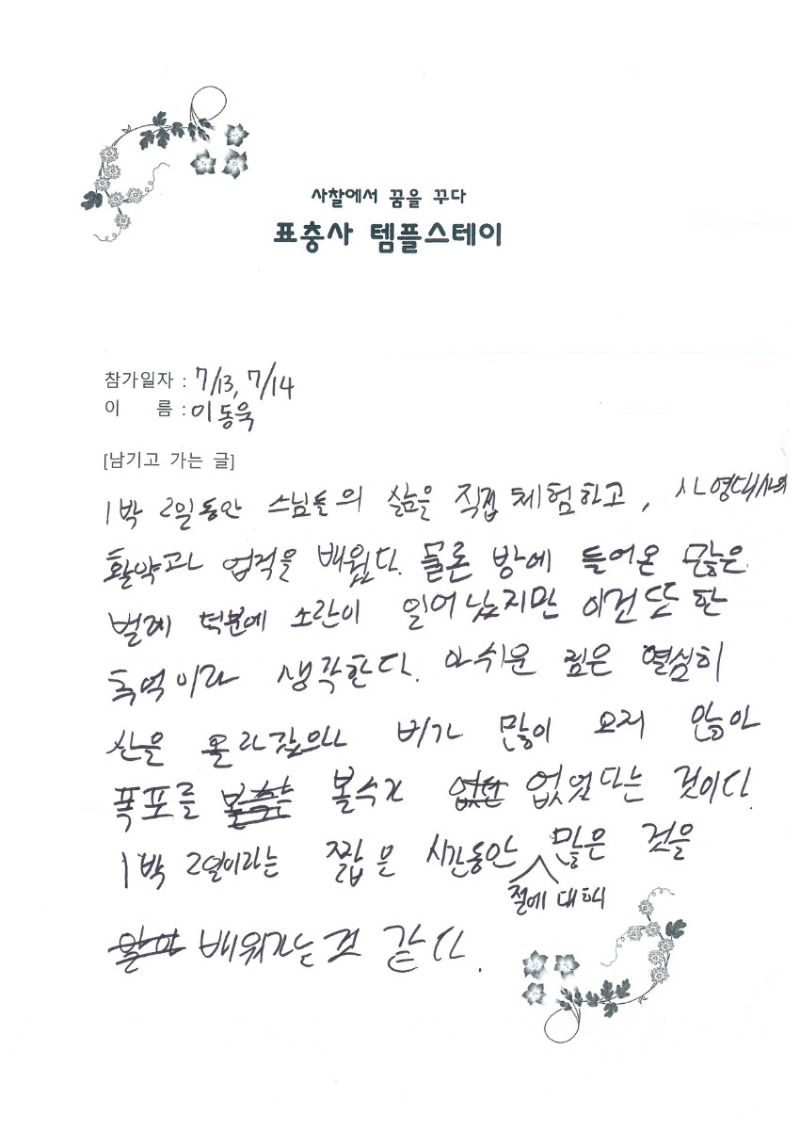 사찰에서 꿈을 꾸다
표충사 템플스테이
참가일자 : 7/13, 7/14
이 름 : 이동욱
[남기고 가는 글]
1박 2일동안 스님들의 삶을 직접 체험하고, 사명대사의
활약과 업적을 배웠다. 물론 방에 들어온 많은
벌레 덕분에 소란이 일어났지만 이것 또한
추억이라 생각한다. 아쉬운 점은 열심히
산을 올라갔으나 비가 많이 오지 않아
폭포를 볼수가 없었다는 것이다.
1박 2일이라는 짧은 시간동안 절에 대해 많은 것을
배워가는 것 같다.